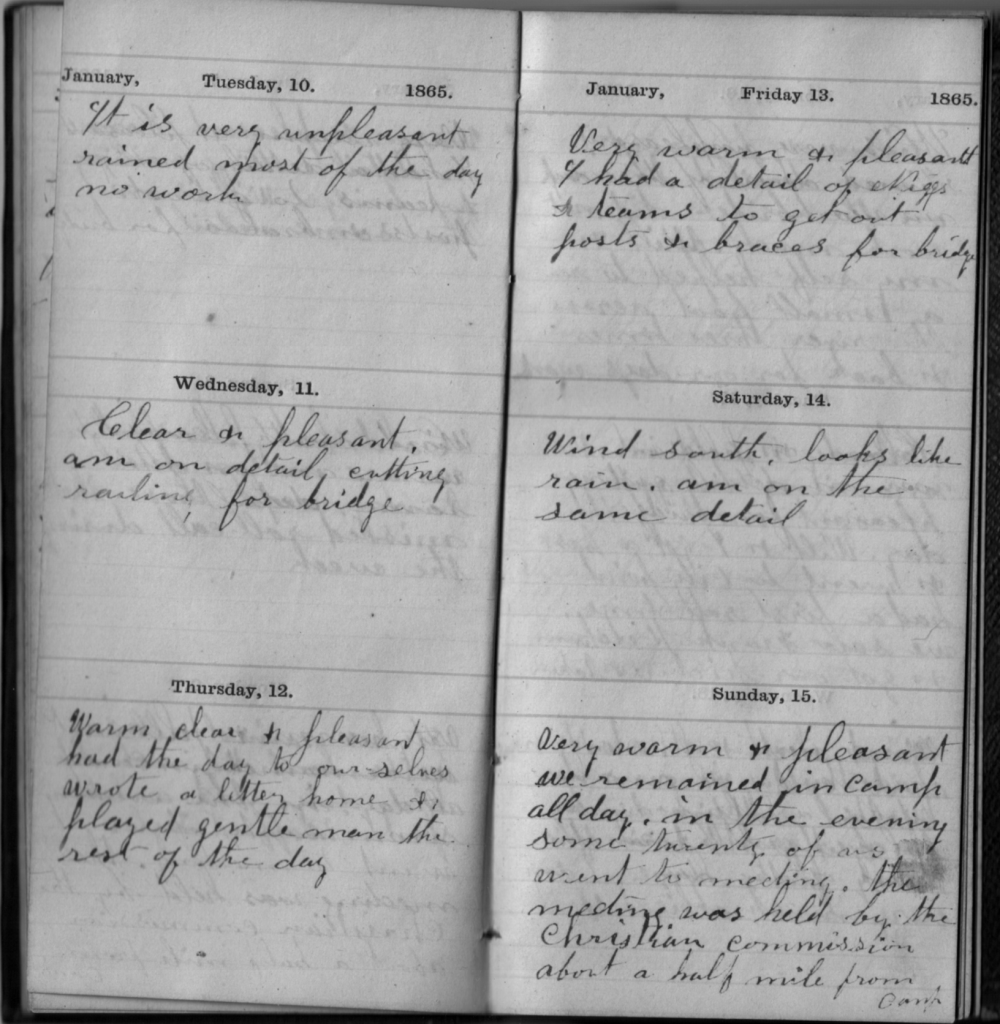 January, Tuesday, 10. 1865.
It is very unpleasant
rained most of the day
no work
Wednesday, 11.
Clear & pleasant.
am on detail cutting
railing for bridge
Thursday, 12.
Warm clear & pleasant
had the day to our selves
wrote a letter home &
played gentle man the
rest of the day
January, Friday 13. 1865.
Very warm & pleasant
I had a detail of Niggs
& teams to get out
posts & braces for bridge
Saturday, 14.
Wind south. looks like
rain. am on the
same detail
Sunday, 15.
Very warm & pleasant
we remained in camp
all day. in the evening
some twenty of us
went to meeting. the
meeting was held by the
Christian commission
about a half mile from
camp